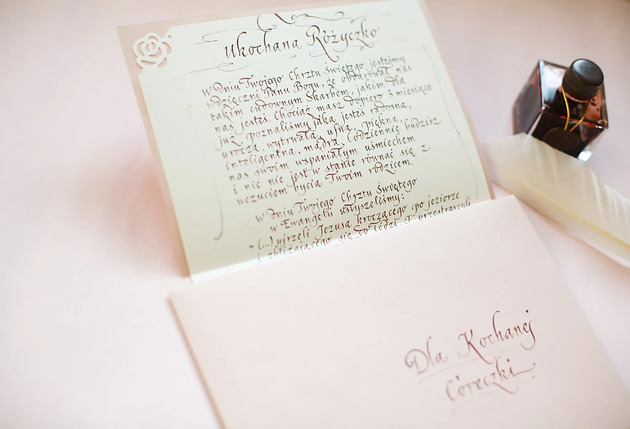 Ukochana Różyczko
w Dniu Twojego Chrztu Świętego jesteśmy
wdzięczni Panu Bogu, że obdarował nas
takim cudownym skarbem, jakim dla
nas jesteś. Chociaż masz dopiero 3 miesiące
już poznaliśmy jaka jesteś radosna,
urocza, wytrwała, ufna, piękna,
inteligentna, mądra. Codziennie budzisz
nas swoim wspaniałym uśmiechem
i nic nie jest w stanie równać się z
uczuciem bycia Twoim rodzicem.
w Dniu Twojego Chrztu Świętego
w Ewangelii usłyszeliśmy:
"(...) ujrzeli Jezusa kroczącego po jeziorze
i zbliżającego się do łodzi. I przestraszyli
Dla Kochanej
Córeczki